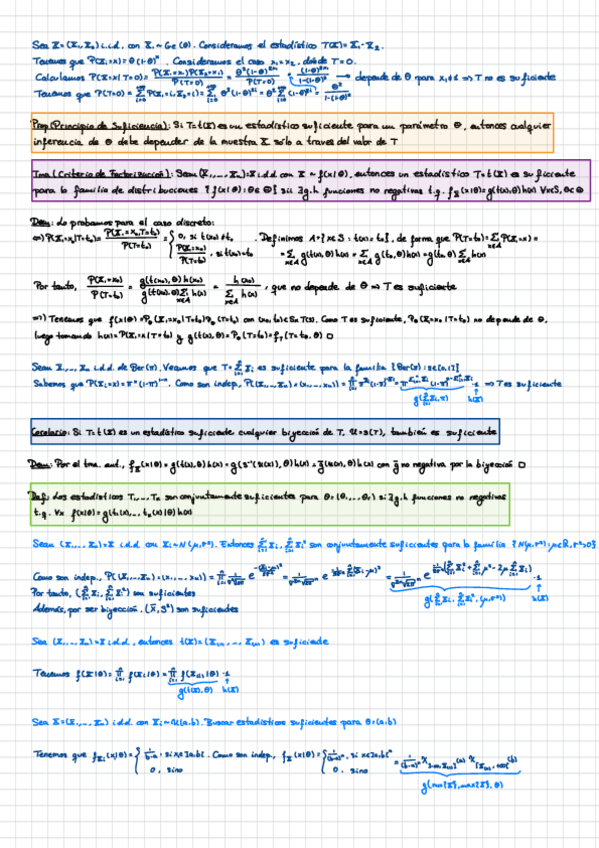 Sea X=(X₁,X₂) i.i.d. con Xᵢ~Ge(θ). Consideramos el estadístico T(X)=X₁-X₂.
Tenemos que P(Xᵢ=x)=θ(1-θ)ˣ. Consideramos el caso x₁=x₂, donde T=0.
Calculamos P(X=x|T=0)= → depende de θ para x₁ ⇒ T no es suficiente
Tenemos que P(T=0)=
Prop (Principio de Suficiencia): Si T=t(X) es un estadístico suficiente para un parámetro θ, entonces cualquier
inferencia de θ debe depender de la muestra X sólo a través del valor de T
Tma (Criterio de Factorización): Sean (X₁,...,Xₙ)=X i.d.d con X~f(x|θ), entonces un estadístico T=t(X) es suficiente
para la familia de distribuciones {f(x|θ): θ∈Θ} sii ∃g,h funciones no negativas t.q. f_X(x|θ)=g(t(x),θ)h(x) ∀x∈S, θ∈Θ
Dem: Lo probamos para el caso discreto:
⇐) P(X=x₀|T=t₀)= P(X=x₀,T=t₀)/P(T=t₀) = {0, si t(x₀)≠t₀ . Definimos A={x∈S: t(x)=t₀}, de forma que P(T=t₀)=Σ P(X=x)=
P(X=x₀)/P(T=t₀), si t(x₀)=t₀ =Σ g(t(x),θ)h(x)=Σ g(t₀,θ)h(x)=g(t₀,θ)Σ h(x)
Por tanto, P(X=x₀)/P(T=t₀) = g(t(x₀),θ)h(x₀)/g(t₀,θ)Σh(x) = h(x₀)/Σh(x), que no depende de θ ⇒ T es suficiente
⇒) Tenemos que f(x|θ)=P_θ(X=x₀|T=t₀)P_θ(T=t₀) con (x₀,t₀)∈S×T. Como T es suficiente, P_θ(X=x₀|T=t₀) no depende de θ,
luego tomando h(x)=P(X=x|T=t₀) y g(t(x),θ)=P_θ(T=t₀)=f_T(t₀,θ) □
Sean X₁,...,Xₙ i.d.d. de Ber(π). Veamos que T=ΣXᵢ es suficiente para la familia {Ber(π): π∈[0,1]}
Sabemos que P(Xᵢ=x)=πˣ(1-π)¹⁻ˣ. Como son indep., P((X₁,...,Xₙ)=(x₁,...,xₙ))= ·1 ⇒ T es suficiente
g(ΣXᵢ,π) h(X)
Corolario: Si T=t(X) es un estadístico suficiente cualquier biyección de T, U=s(T), también es suficiente
Dem: Por el tma. ant., f_X(x|θ)=g(t(x),θ)h(x)=g(s⁻¹(u(x)),θ)h(x)=g̃(u(x),θ)h(x) con g̃ no negativa por la biyección □
Def: dos estadísticos T₁,...,Tₖ son conjuntamente suficientes para θ=(θ₁,...,θᵣ) si ∃g,h funciones no negativas
t.q. ∀x f(x|θ)=g(t₁(x),...,tₖ(x)|θ)h(x)
Sean (X₁,...,Xₙ)=X i.d.d. con Xᵢ~N(μ,σ²). Entonces ΣXᵢ, ΣXᵢ² son conjuntamente suficientes para la familia {N(μ,σ²): μ∈ℝ, σ>0}
Como son indep., P((X₁,...,Xₙ)=(x₁,...,xₙ))=
Por tanto, (ΣXᵢ, ΣXᵢ²) son suficientes
g(ΣXᵢ,ΣXᵢ²,(μ,σ²)) h(X)
Además, por ser biyección, (X̄,S²) son suficientes
Sea (X₁,...,Xₙ)=X i.d.d., entonces t(X)=(X₍₁₎,...,X₍ₙ₎) es suficiente
Tenemos f(X|θ)=∏f(Xᵢ|θ)=∏f(X₍ᵢ₎|θ)·1
g(t(X),θ) h(X)
Sea X=(X₁,...,Xₙ) i.d.d con Xᵢ~U(a,b). Buscar estadísticos suficientes para θ=(a,b)
Tenemos que f_Xᵢ(x|θ)={1/(b-a), si x∈]a,b[ . Como son indep., f_X(x|θ)={1/(b-a)ⁿ, si x∈]a,b[ⁿ
0, sino 0, sino
g(min{X},max{X},θ)